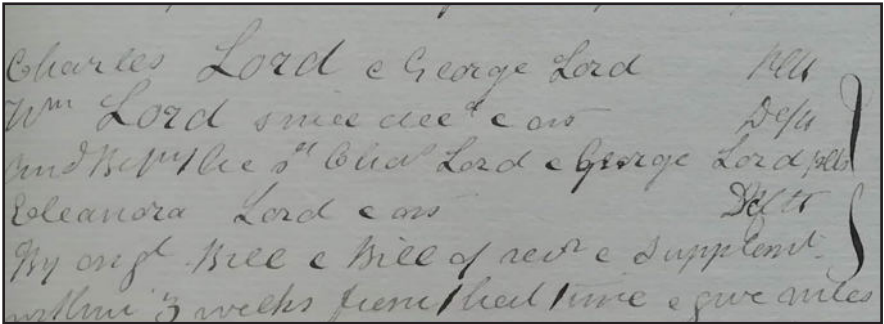 Charles Lord & George Lord Plts
Wm Lord since decd & ors Defts
And Betw the sd Chas Lord & George Lord plts
Eleanora Lord & ors Defts
By origl Bill & Bill of revr & Supplemt
within 3 weeks from that time & give rules